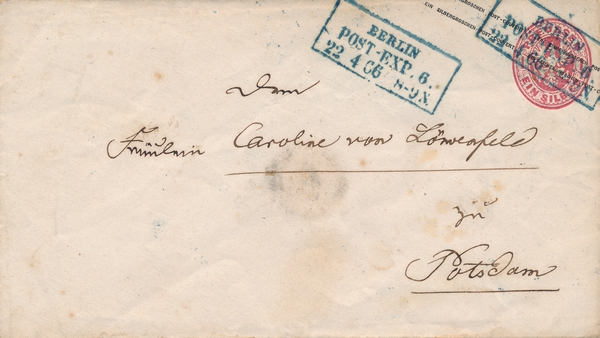 EIN SILBERGROSCHEN POST-COUVERT
BERLIN
POST-EXP. 6.
22 4 66 8-9N.
BERLIN
POST-EXP. 6.
22 4 66 8-9N
EIN SILB
Dem
Fräulein Caroline von Löwenfeld
zu
Potsdam